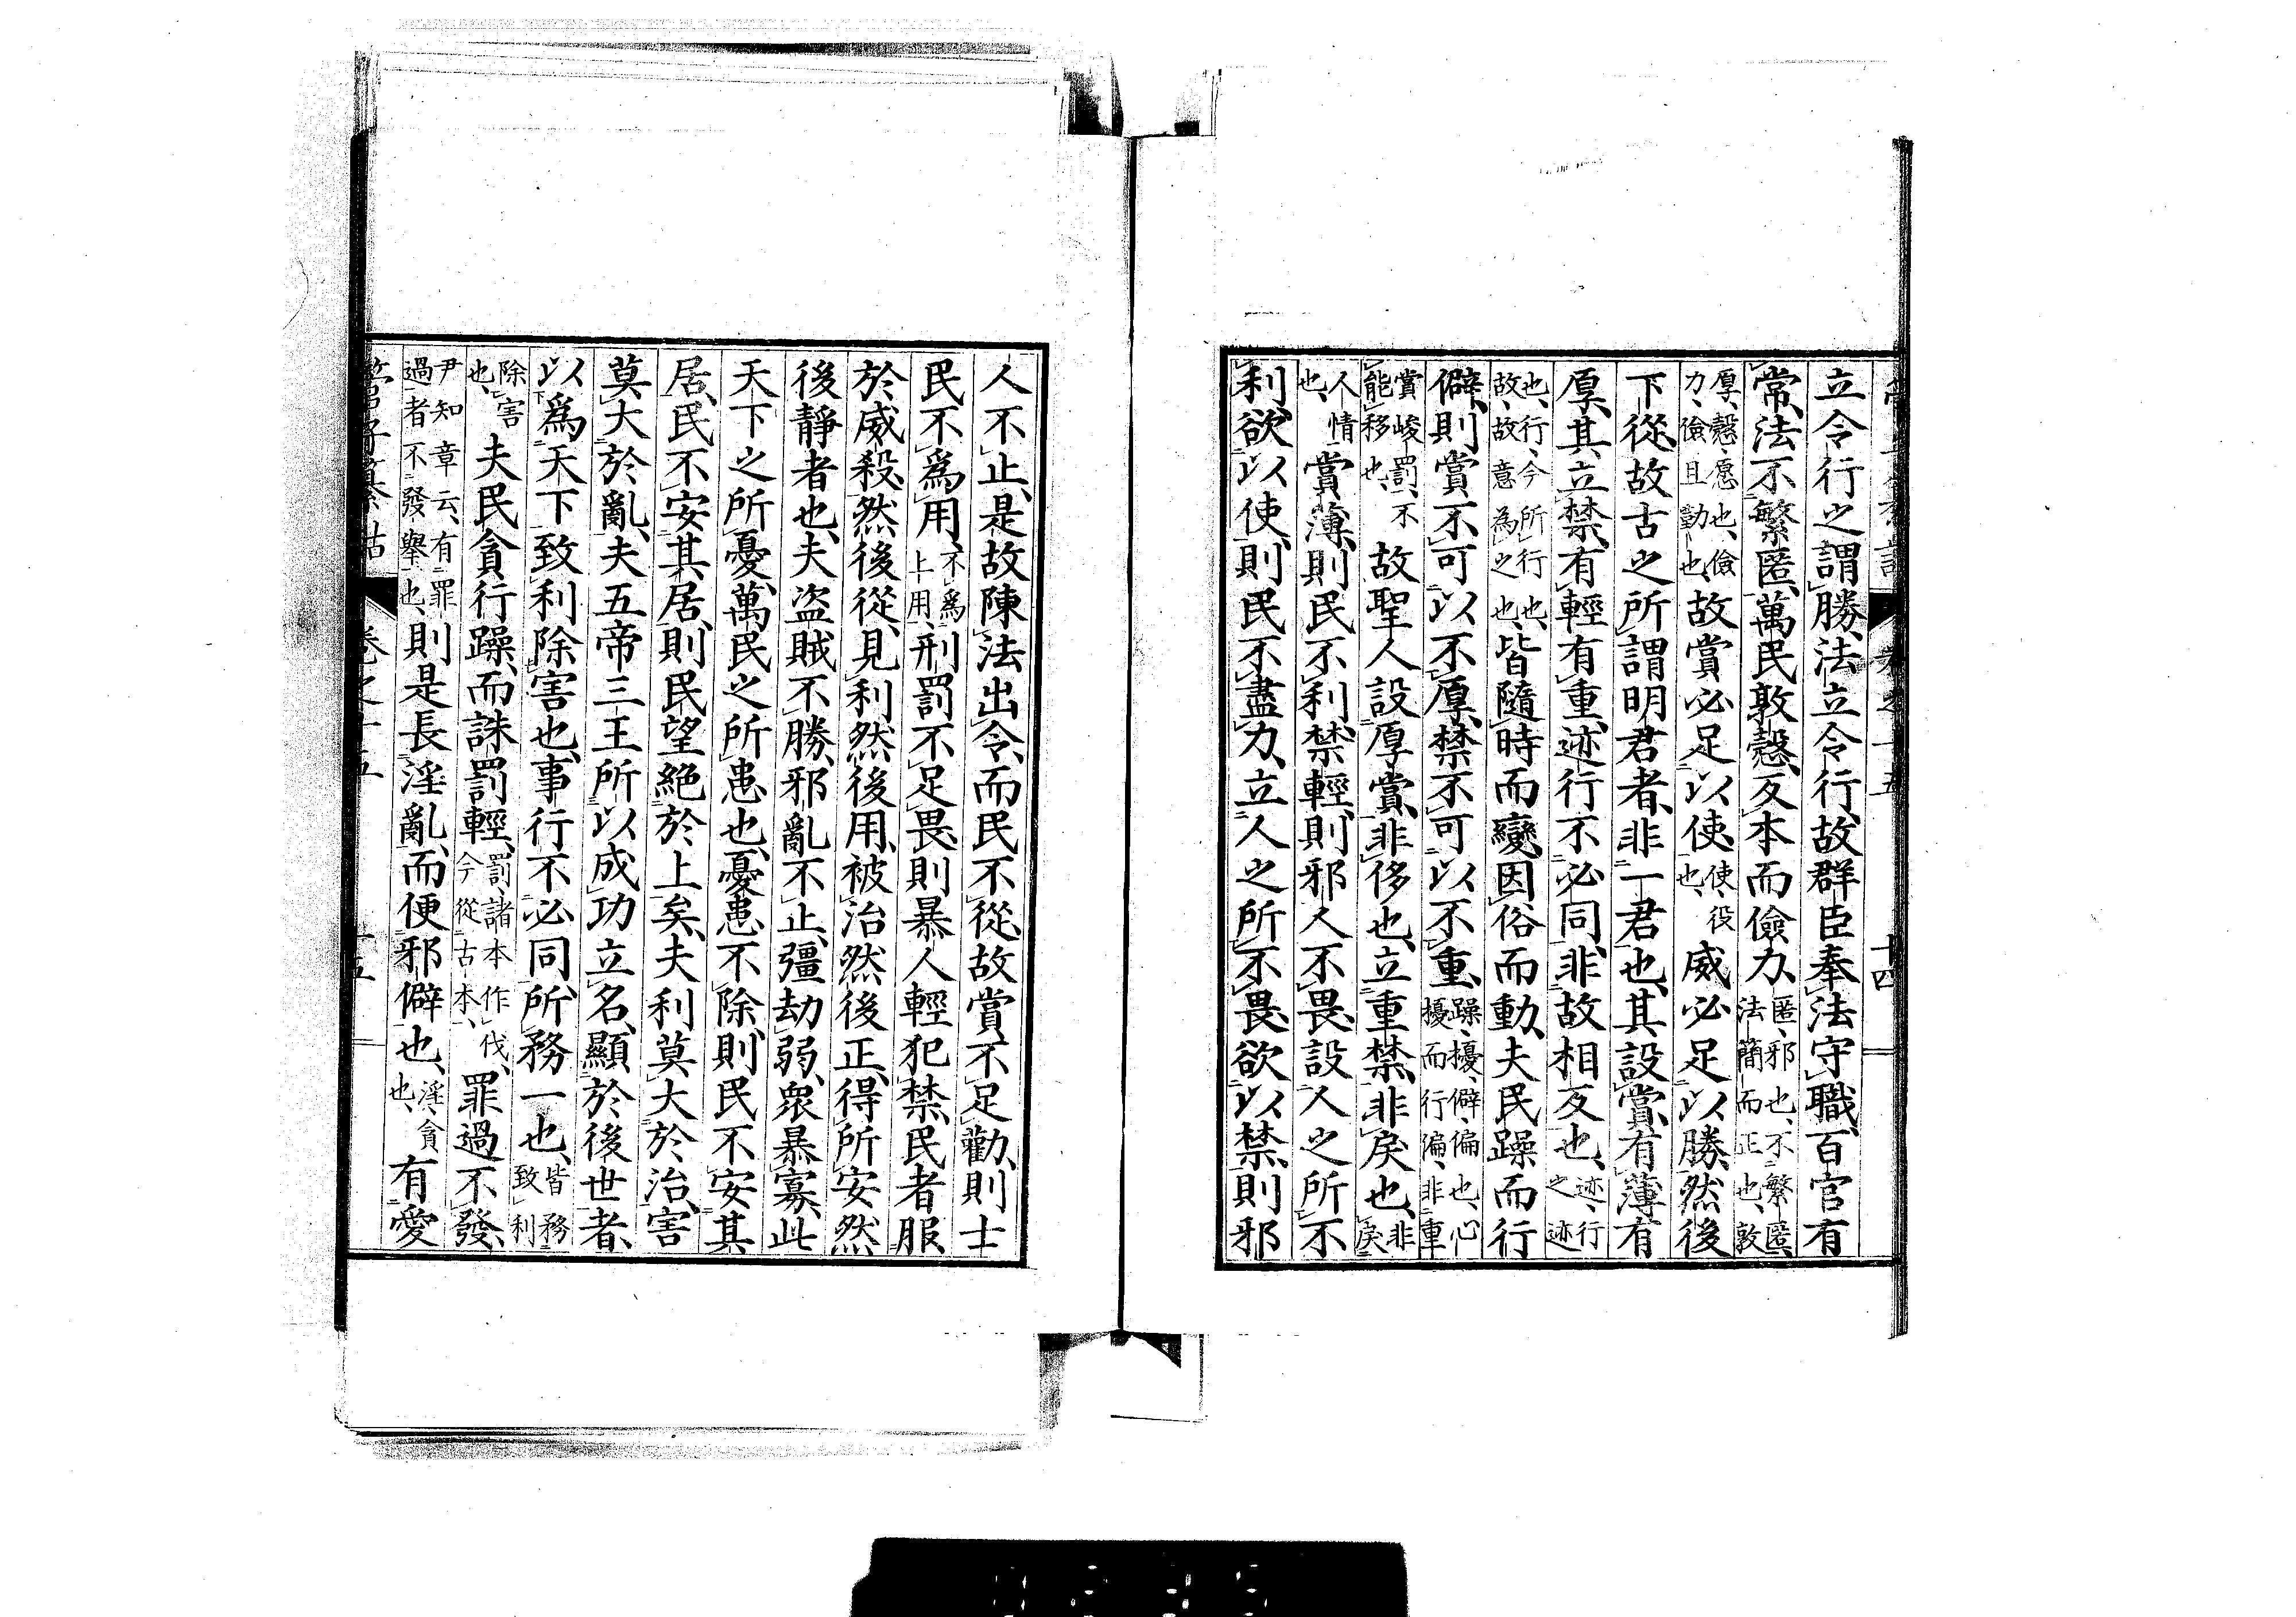 立令行之謂勝、法立令行、故群臣奉法守職、百官有
常、法不繁匿、萬民敦愨、反本而儉力、匿、邪也、不繁匿、法簡而正也、敦
厚、愨、愿也、儉力、儉且勤也、故賞必足以使、使、役也、威必足以勝、然後
下從故古之所謂明君者、非一君也、其設賞有薄有
厚、其立禁有輕有重、迹行不必同、非故相反也、迹、行之迹
也、行、今所行也、故、故意為之也、皆隨時而變、因俗而動、夫民躁而行
僻、則賞不可以不厚、禁不可以不重、躁、擾、僻、偏也、心擾而行偏、非重
賞峻罰、不能移也、故聖人設厚賞、非侈也、立重禁、非戾也、非戾
人情也、賞薄、則民不利、禁輕、則邪人不畏、設人之所不
利、欲以使、則民不盡力、立人之所不畏、欲以禁、則邪
人不止、是故陳法出令、而民不從、故賞不足勸、則士
民不爲用、不爲上用、刑罰不足畏、則暴人輕犯禁、民者服
於威殺、然後從、見利然後用、被治然後正、得所安、然
後靜者也、夫盜賊不勝、邪亂不止、彊劫弱、衆暴寡、此
天下之所憂、萬民之所患也、憂患不除、則民不安其
居、民不安其居、則民望絕於上矣、夫利莫大於治、害
莫大於亂、夫五帝三王所以成功立名、顯於後世者、
以爲天下致利除害也、事行不必同、所務一也、皆務致利
除害也、夫民貪行躁、而誅罰輕、罰、諸本作伐、今從古本、罪過不發、
尹知章云、有罪過者不發擧也、則是長淫亂、而便邪僻也、淫、貪也、有愛
管子纂詁 卷之十五 十五